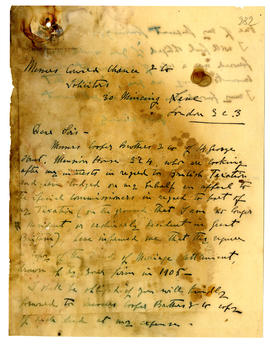 232
Messrs Coward Chance & Co
Solicitors
30 Mincing Lane
London E.C.3
Dear Sirs -
Messrs Cooper Brothers & Co of 14 George
Street, Mansion House E.C.4, who are looking
after my interests in regard to British Taxation
and have lodged on my behalf an appeal to
Special Commissioners in regard to part of
my Taxation (on the ground that I am no longer
resident or ordinarily resident in Great
Britain) have informed me that they require
copy of the deed of Marriage Settlement
drawn by your firm in 1905
I shall be obliged if you will kindly
forward to Messrs Cooper Brothers & Co copy
of such deed at my expense.